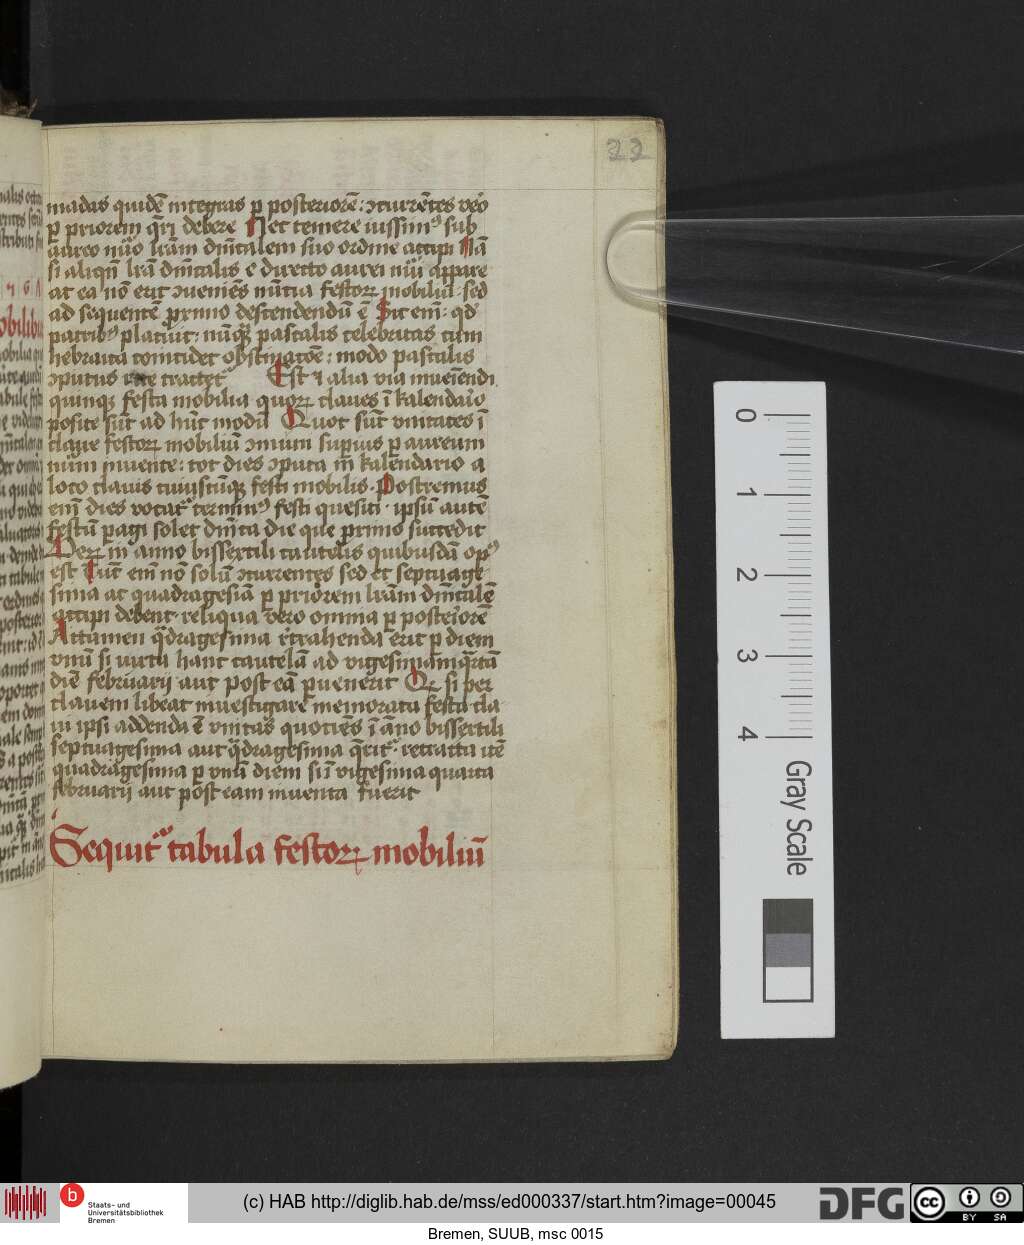 22
madas quidē integras p̱ posteriorē: ↄcurrētes v̄o
p̱ priorem q̄ri debere Nec temere iussimꝰ sub
aureo nūo lrām dn̄icalem suo ordine accipi Nā
si aliqn̄ lrā dn̄icalis e directo aurei nūi appare
at ea nō erit ↄueniēs nūcia festoꝝ mobiliū· sed
ad sequentē primo descendendū ē Sic em̄: qd̄
patribꝰ placuit: nūqꝫ pascalis celebritas cum
hebraica coincidet obseruacōe: modo pascalis
ↄputus rite tractetᷣ Est ⁊ alia via inueīendi
quinqꝫ festa mobilia quoꝝ claues ī kalendaͥo
posite sūt ad hūc modū Quot sūt vnitates ī
claue festoꝝ mobiliū ↄmuni supius p̱ aureum
nūm inuente: tot dies ↄputa in kalendario a
loco clauis cuiuscūqꝫ festi mobilis· Postremus
em̄ dies vocatᷣ terminꝰ festi quesiti· ipsū autē
festū pagi solet dn̄ica die que primo succedit
Veꝝ in anno bissextili cautelis quibusdā opꝰ
est Cūc em̄ nō solū ↄcurrentes sed et septuage
sima ac quadragesīa p̱ priorem lrām dn̄icalē
accipi debent· reliqua vero omnia p̱ posteͥorē
Attamen q̄dragesima rͤtrahenda erit p̱ diem
vnū si iuxta hanc cautelā ad vigesimāmq̄rtā
diē februarij aut post eā puenerit Qꝛ si per
clauem libeat inuestigare memorata festa cla
ui ipsi addenda ē vnitas quociēs ī āno bissextili
septuagesima aut q̄dragesima q̄ritᷣ· retracta itē
quadragesima p̱ vnū diem si ī vigesima quarta
februarij aut post eam inuenta fuerit
Sequitᷣ tabula festoꝝ mobiliū
0
1
2
3
4
Gray Scale
b
Staats- und
Universitätsbibliothek
Bremen
(c) HAB http://diglib.hab.de/mss/ed000337/start.htm?image=00045
DFG
cc
BY SA
Bremen, SUUB, msc 0015